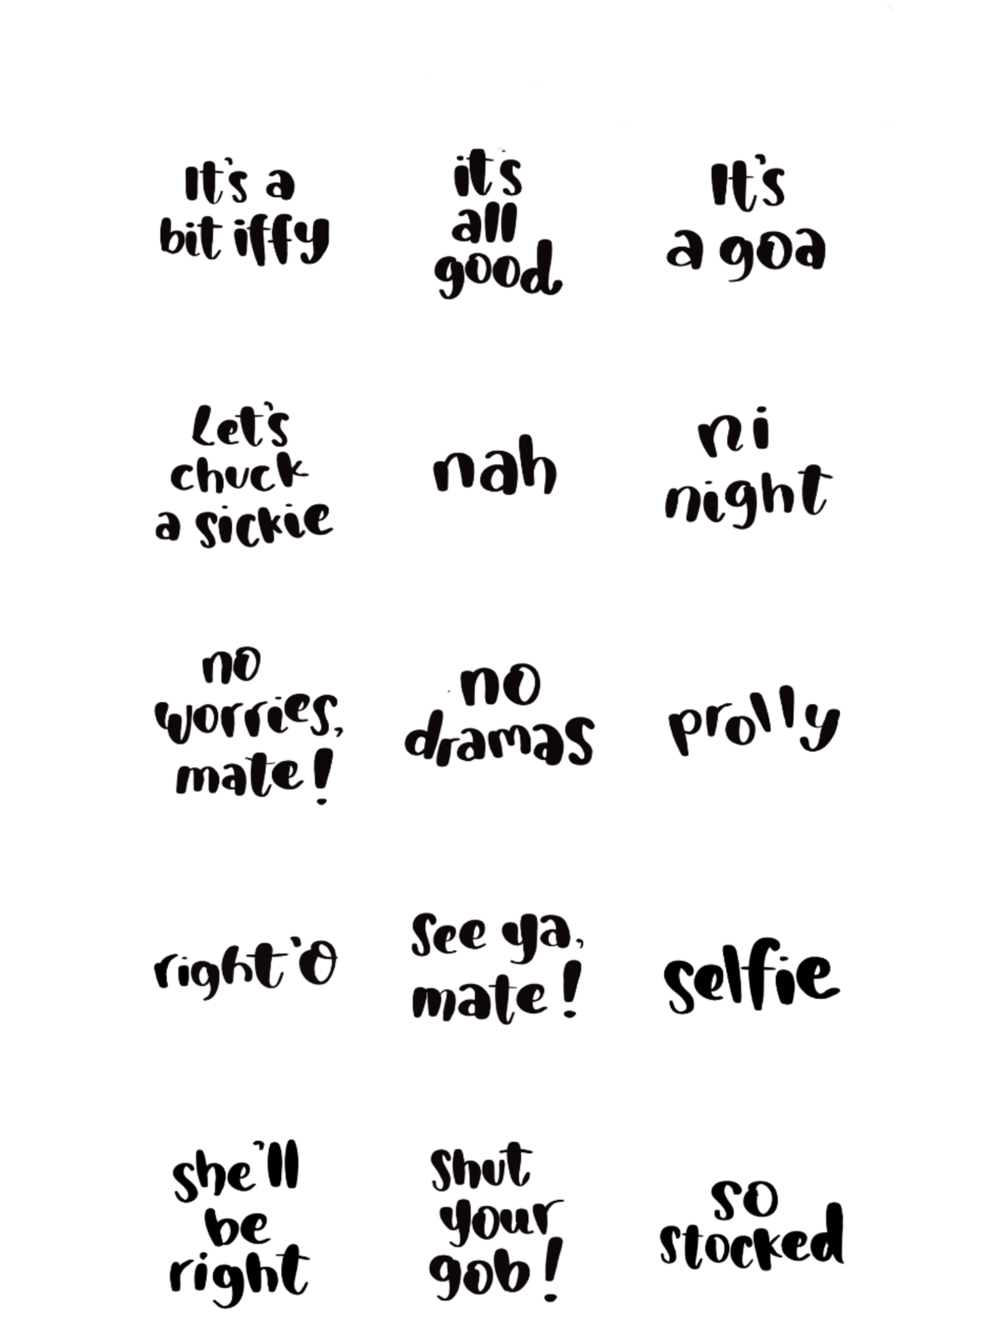 It's a
bit iffy
it's
all
good
It's
a goa
Let's
chuck
a sickie
nah
ni
night
no
worries,
mate!
no
dramas
prolly
right'o
See ya,
mate!
selfie
she'll
be
right
Shut
your
gob!
so
stocked